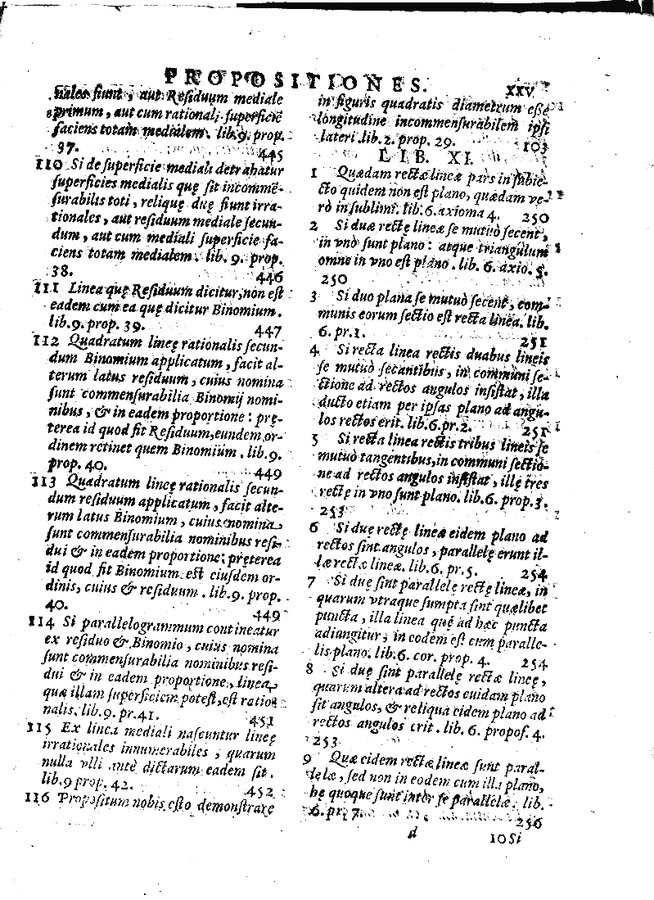 PROPOSITIONES.
XXV
nales fiunt, aut Residuum mediale
primum, aut cum rationali superficie
faciens totam medialem. lib. 9. prop.
37. 445
110 Si de superficie mediali detrahatur
superficies medialis quę sit incommē-
surabilis toti, reliquę duę fiunt irra-
tionales, aut residuum mediale secun-
dum, aut cum mediali superficie fa-
ciens totam medialem. lib. 9. prop.
38. 446
111 Linea quę Residuum dicitur, non est
eadem cum ea quę dicitur Binomium.
lib. 9. prop. 39. 447
112 Quadratum lineę rationalis secun-
dum Binomium applicatum, facit al-
terum latus residuum, cuius nomina
sunt commensurabilia Binomij nomi-
nibus, & in eadem proportione: prę-
terea id quod fit Residuum, eundem or-
dinem retinet quem Binomium. lib. 9.
prop. 40. 449
113 Quadratum lineę rationalis secun-
dum residuum applicatum, facit alte-
rum latus Binomium, cuius nomina
sunt commensurabilia nominibus resi-
dui & in eadem proportione: pręterea
id quod fit Binomium est eiusdem or-
dinis, cuius & residuum. lib. 9. prop.
40. 449
114 Si parallelogrammum contineatur
ex residuo & Binomio, cuius nomina
sunt commensurabilia nominibus resi-
dui & in eadem proportione, linea
quæ illam superficiem potest, est ratio-
nalis. lib. 9. pr. 41. 451
115 Ex linea mediali nascuntur lineę
irrationales innumerabiles, quarum
nulla vlli antè dictarum eadem sit.
lib. 9 prop. 42. 452
116 Propositum nobis esto demonstrare
in figuris quadratis diametrum esse
longitudine incommensurabilem ipsi
lateri. lib. 2. prop. 29. 103
LIB. XI.
1 Quædam rectæ lineæ pars in subie-
cto quidem non est plano, quædam ve-
rò in sublimi. lib. 6. axioma 4. 250
2 Si duæ rectę lineæ se mutuò secent,
in vnò sunt plano: atque triangulum
omne in vno est plano. lib. 6. axio. 5.
250
3 Si duo plana se mutuò secent, com-
munis eorum sectio est recta linea. lib.
6. pr. 1. 251
4 Si recta linea rectis duabus lineis
se mutuò secantibus, in communi se-
ctione ad rectos angulos insistat, illa
ducto etiam per ipsas plano ad angu-
los rectos erit. lib. 6. pr. 2. 251
5 Si recta linea rectis tribus lineis se
mutuò tangentibus, in communi sectio-
ne ad rectos angulos insistat, illę tres
rectę in vno sunt plano. lib. 6. prop. 3.
253
6 Si duę rectę lineæ eidem plano ad
rectos sint angulos, parallelę erunt il-
læ rectæ lineæ. lib. 6. pr. 5. 254
7 Si duę sint parallelę rectę lineæ, in
quarum vtraque sumpta sint quælibet
puncta, illa linea quę ad hæc puncta
adiangitur, in eodem est cum paralle-
lis plano. lib. 6. cor. prop. 4. 254
8 Si duę sint parallelę rectæ lineę,
quarum altera ad rectos cuidam plano
sit angulos, & reliqua eidem plano ad
rectos angulos erit. lib. 6. propos. 4.
253
9 Quæ eidem rectæ lineæ sunt paral-
lelæ, sed non in eodem cum illa plano,
hę quoque sunt inter se parallelæ. lib.
6. pr. 7. 256
d
10 Si